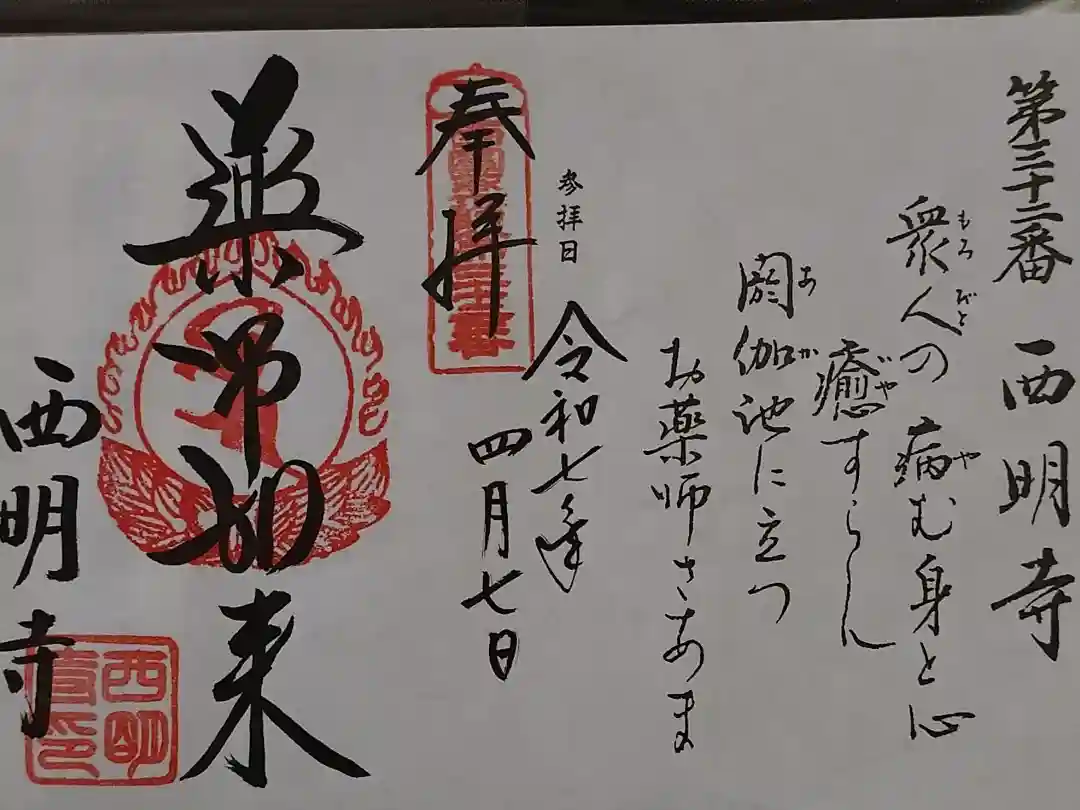 第三十二番 西明寺
衆人の 病む身と心
もろ びと や
癒すらん
いや
閼伽池に立つ
あ か
お薬師さあま
参拝日 令和七年
四月七日
奉拝
薬师如来
西明寺
西明